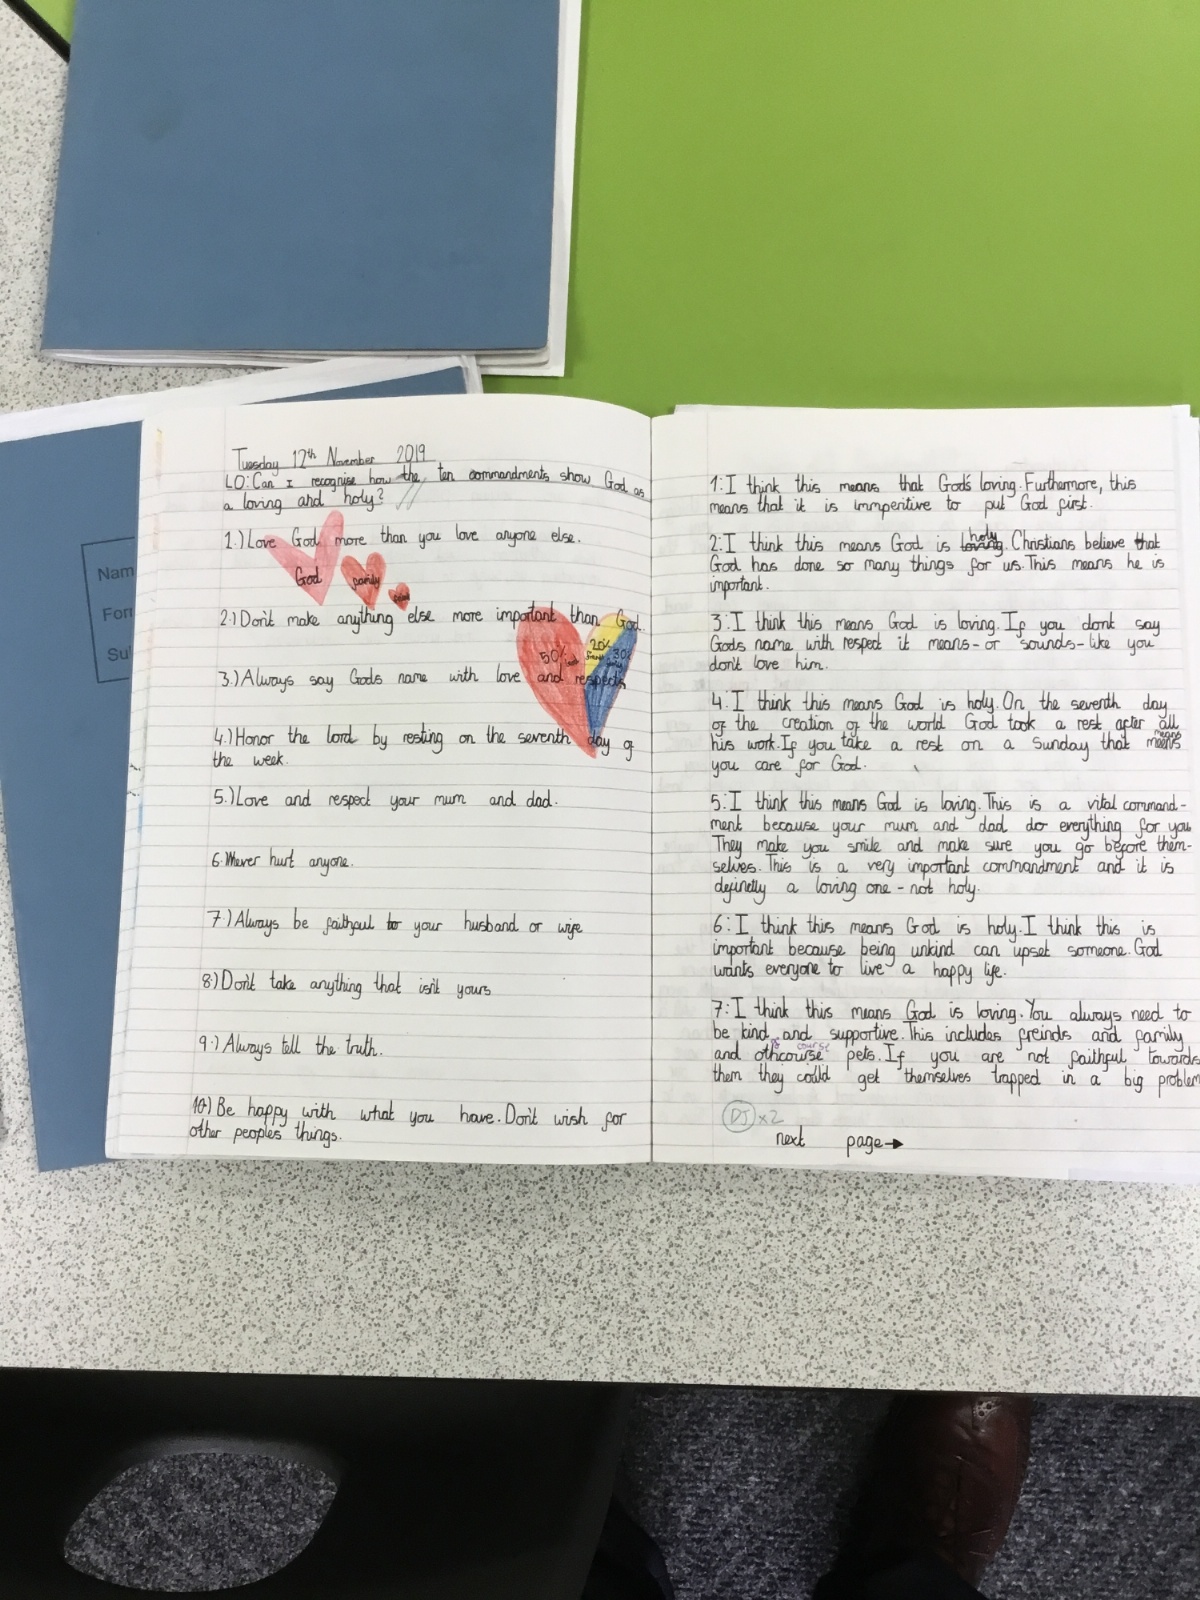 Nam
For
Su
Tuesday 12th November 2019
LO: Can I recognise how the ten commandments show God as
a loving and holy?
1.) Love God more than you love anyone else.
God family
2.) Don't make anything else more important than God.
50% 20% 30%
3.) Always say Gods name with love and respects
4.) Honor the lord by resting on the seventh day of
the week.
5.) Love and respect your mum and dad.
6. Never hurt anyone.
7.) Always be faithful to your husband or wife
8.) Don't take anything that isn't yours
9.) Always tell the truth.
10.) Be happy with what you have. Don't wish for
other peoples things.
1: I think this means that God's loving. Furthermore, this
means that it is immperitive to put God first.
2: I think this means God is loving holy. Christians believe that
God has done so many things for us. This means he is
important.
3: I think this means God is loving. If you dont say
Gods name with respect it means - or sounds - like you
don't love him.
4: I think this means God is holy. On the seventh day
of the creation of the world God took a rest after all
his work. If you take a rest on a Sunday that means
you care for God.
5: I think this means God is loving. This is a vital command-
ment because your mum and dad do everything for you
They make you smile and make sure you go before them-
selves. This is a very important commandment and it is
definetly a loving one - not holy.
6: I think this means God is holy. I think this is
important because being unkind can upset someone. God
wants everyone to live a happy life.
7: I think this means God is loving. You always need to
be kind and supportive. This includes freinds and family
and othcourse course pets. If you are not faithful towards
them they could get themselves trapped in a big problem
DJ x2
next page →